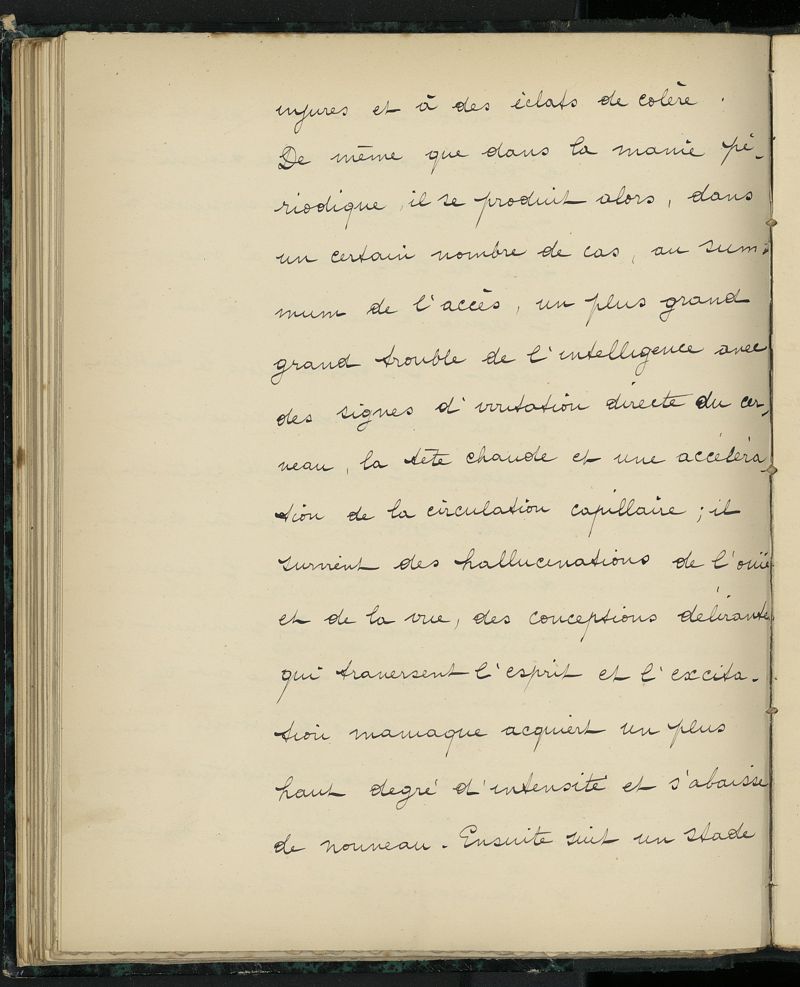 injures et à des éclats de colère .
De même que dans la manie pé-
riodique, il se produit alors, dans
un certain nombre de cas, au sum-
mum de l'accès, un plus grand
grand trouble de l'intelligence avec
des signes d'irritation directe du cer-
veau, la tête chaude et une accéléra-
tion de la circulation capillaire ; il
survient des hallucinations de l'ouïe
et de la vue, des conceptions délirantes
qui traversent l'esprit et l'excita-
tion maniaque acquiert un plus
haut degré d'intensité et s'abaisse
de nouveau. Ensuite suit un stade